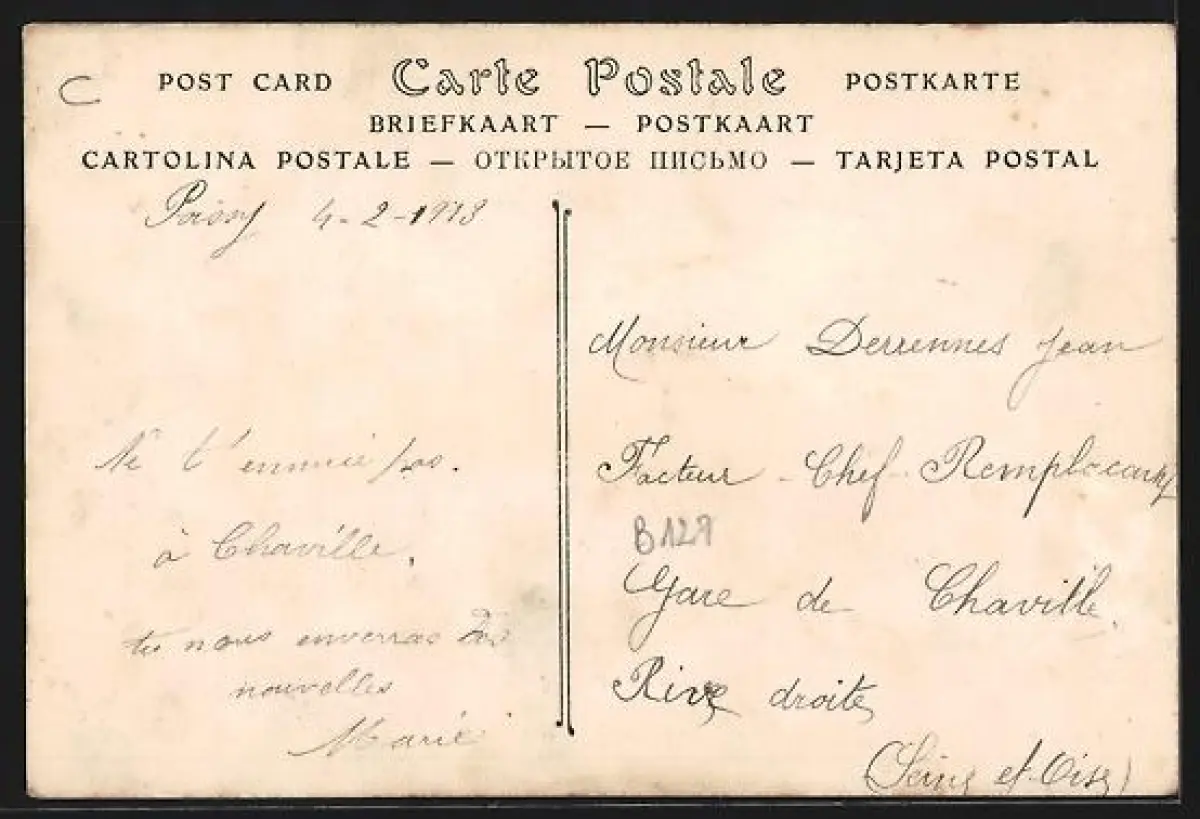 POST CARD Carte Postale POSTKARTE
BRIEFKAART — POSTKAART
CARTOLINA POSTALE — ОТКРЫТОЕ ПИСЬМО — TARJETA POSTAL
Poissy 4-2-1913
Ne t'ennuie pas.
à Chaville.
tu nous enverras des
nouvelles
Marie
Monsieur Derrennes Jean
Facteur - Chef - Remplacant
B129
Gare de Chaville.
Rive droite
(Seine et Oise)